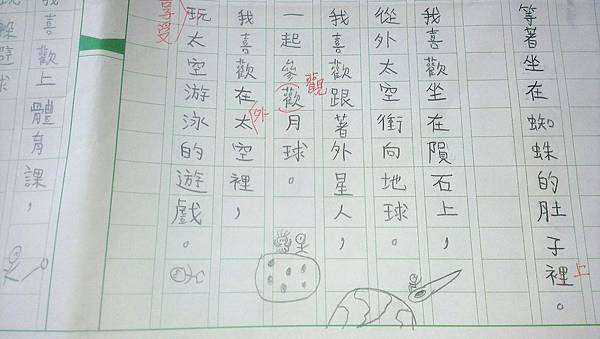 等著坐在蜘蛛的肚子裡。
上
我喜歡坐在隕石上，
從外太空衝向地球。
我喜歡跟著外星人，
一起參歡月球。
觀
我喜歡在太空裡，
外
玩太空游泳的遊戲。
享受
我喜歡上體育課，
玩躲避球